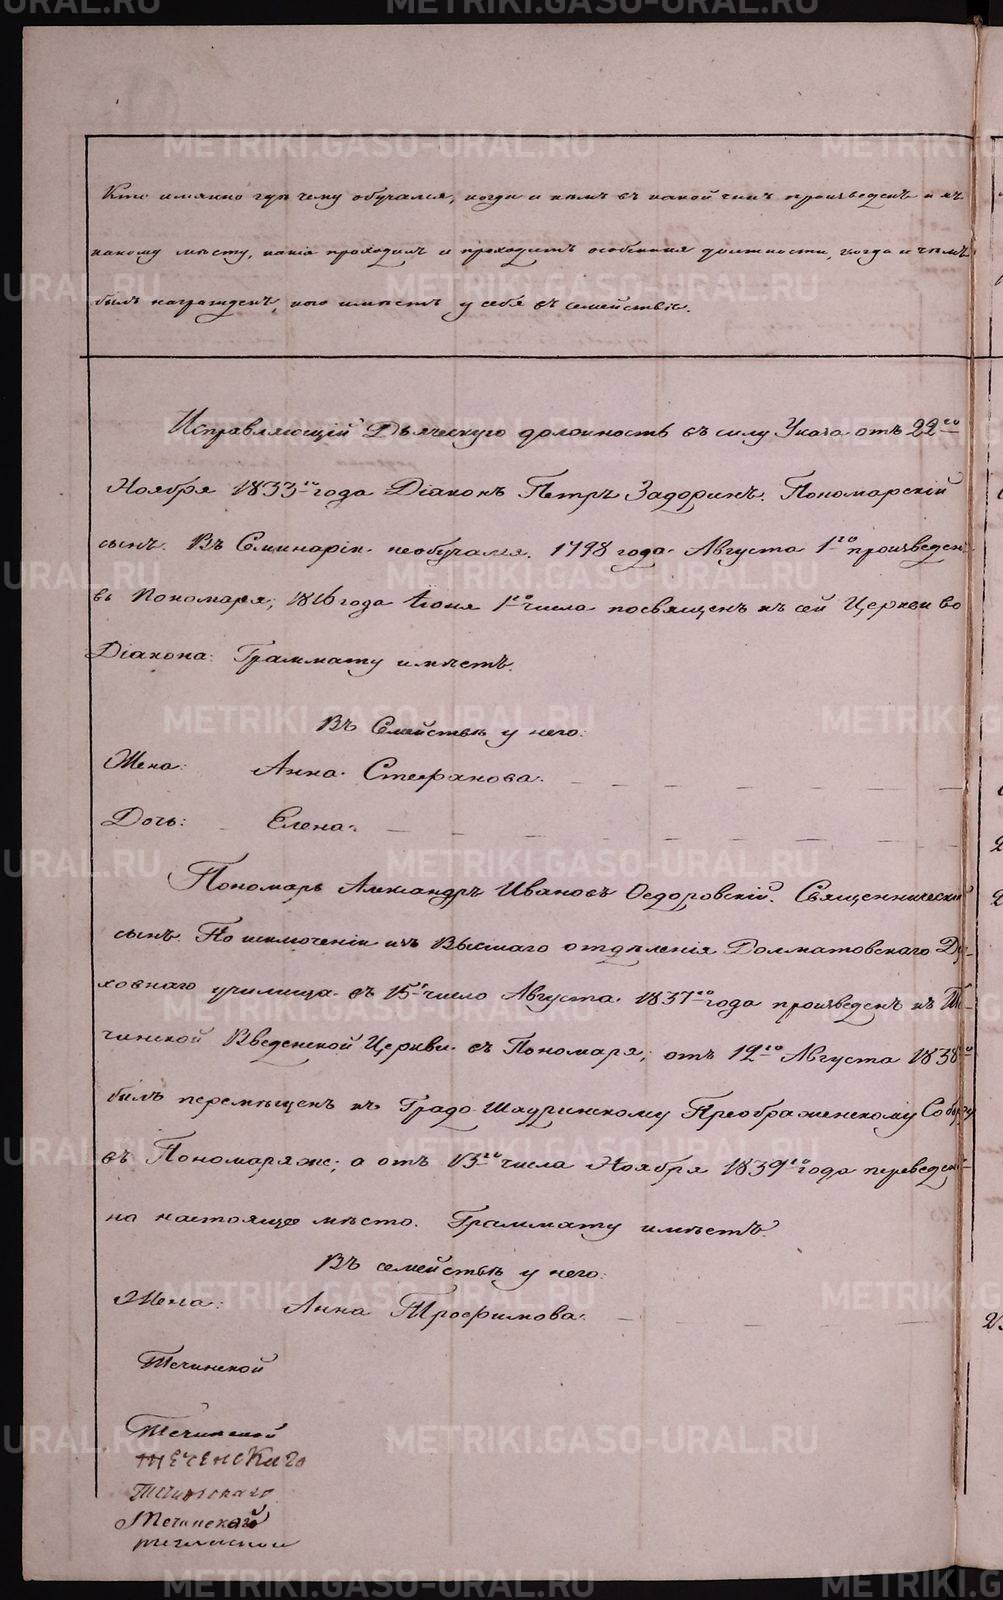 Кто имянно где чему обучался, когда и кемъ въ какой чинъ произведенъ и къ
какому мѣсту, какія проходилъ и проходитъ особенныя должности, когда и чѣмъ
былъ награжденъ, кого имѣетъ у себя въ семействѣ.
Исправляющій Дьяческую должность въ силу Указа отъ 22го
Ноября 1833го года Діаконъ Петръ Задоринъ. Пономарскій
сынъ. Въ Семинаріи необучался. 1798 года Августа 1го произведенъ
въ Пономаря, 1816 года Іюня 1го числа посвященъ къ сей Церкви во
Діакона: Граммату имѣетъ.
Въ Семействѣ у него:
Жена: Анна Стефанова.
Дочь: Елена.
Пономарь Александръ Ивановъ Ѳедоровскій. Священническій
сынъ. По исключеніи изъ Высшаго отдѣленія Долматовскаго Ду-
ховнаго училища въ 15е число Августа 1837го года произведенъ къ Те-
чинской Введенской Церкви въ Пономаря; отъ 12го Августа 1838го
былъ перемѣщенъ къ Градо Шадринскому Преображенскому Собору
въ Пономаря же; а отъ 13го числа Ноября 1839го года переведенъ
на настоящее мѣсто. Граммату имѣетъ.
Въ семействѣ у него:
Жена: Анна Трофимова.
Течинской
Течинской
теченскиго
Течинскаго
Течинской
METRIKI.GASO-URAL.RU